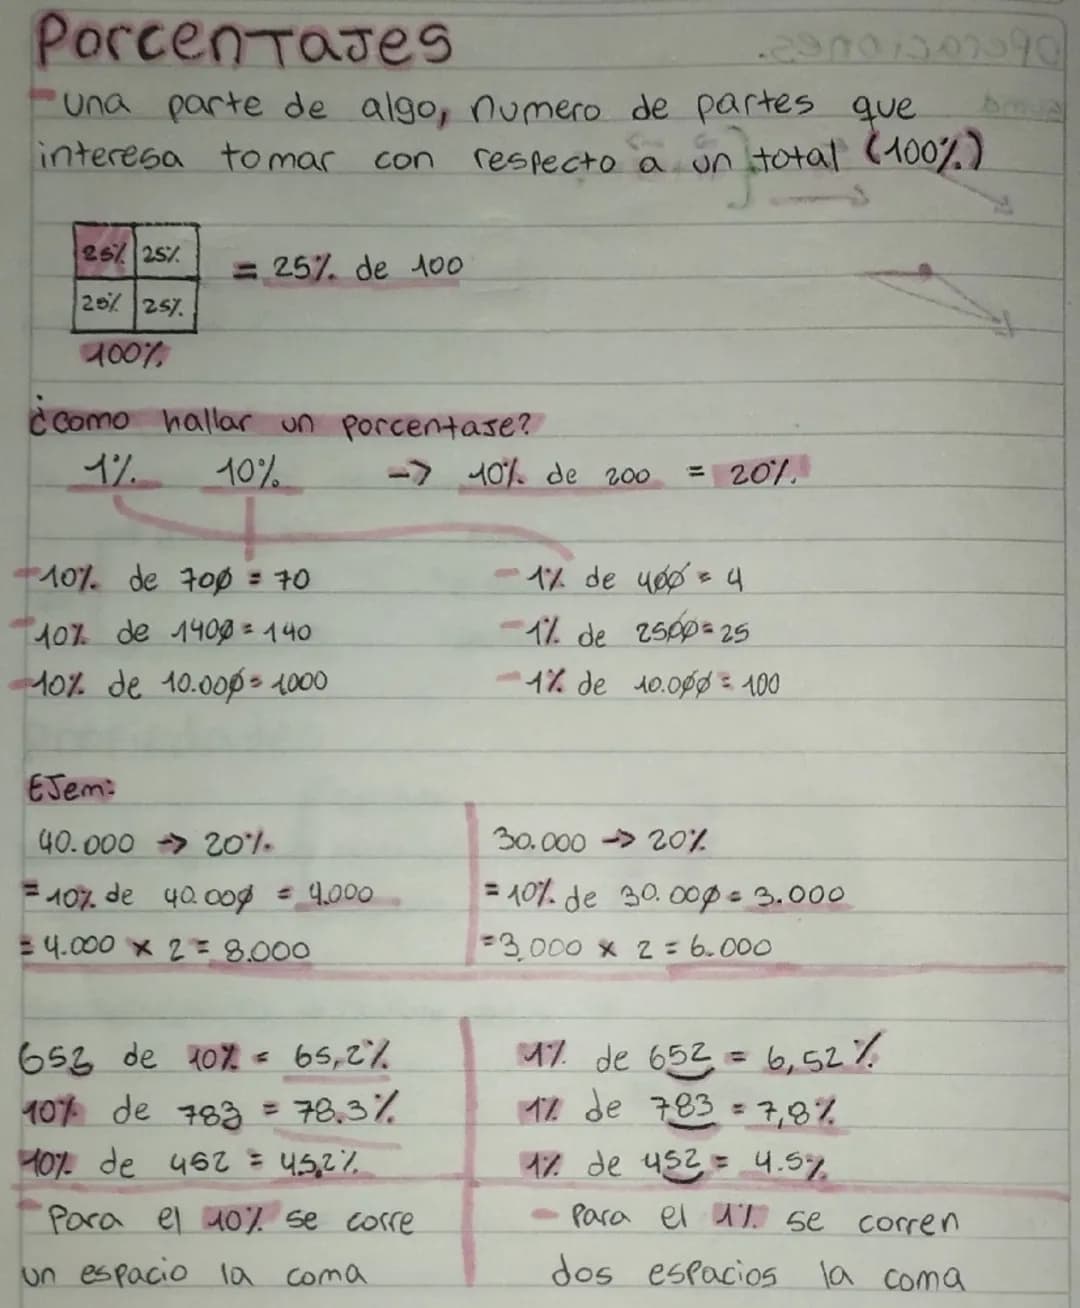 Porcentajes
- una parte de algo, numero de partes que
interesa tomar con respecto a un total (100%)
25% 25%
= 25% de 100
25% 25%
100%
¿como hallar un porcentaje?
1% 10% -> 10% de 200 = 20%
- 10% de 700 = 70
- 1% de 400 = 4
- 10% de 1400 = 140
- 1% de 2500 = 25
- 10% de 10.000 = 1000
- 1% de 10.000 = 100
Ejem:
40.000 -> 20%
30.000 -> 20%
= 10% de 40.000 = 4.000
= 10% de 30.000 = 3.000
= 4.000 x 2 = 8.000
= 3.000 x 2 = 6.000
652 de 10% = 65,2%
1% de 652 = 6,52%
10% de 783 = 78.3%
1% de 783 = 7,8%
10% de 452 = 45,2%
1% de 452 = 4.5%
- Para el 10% se corre
un espacio la coma
- Para el 1% se corren
dos espacios la coma